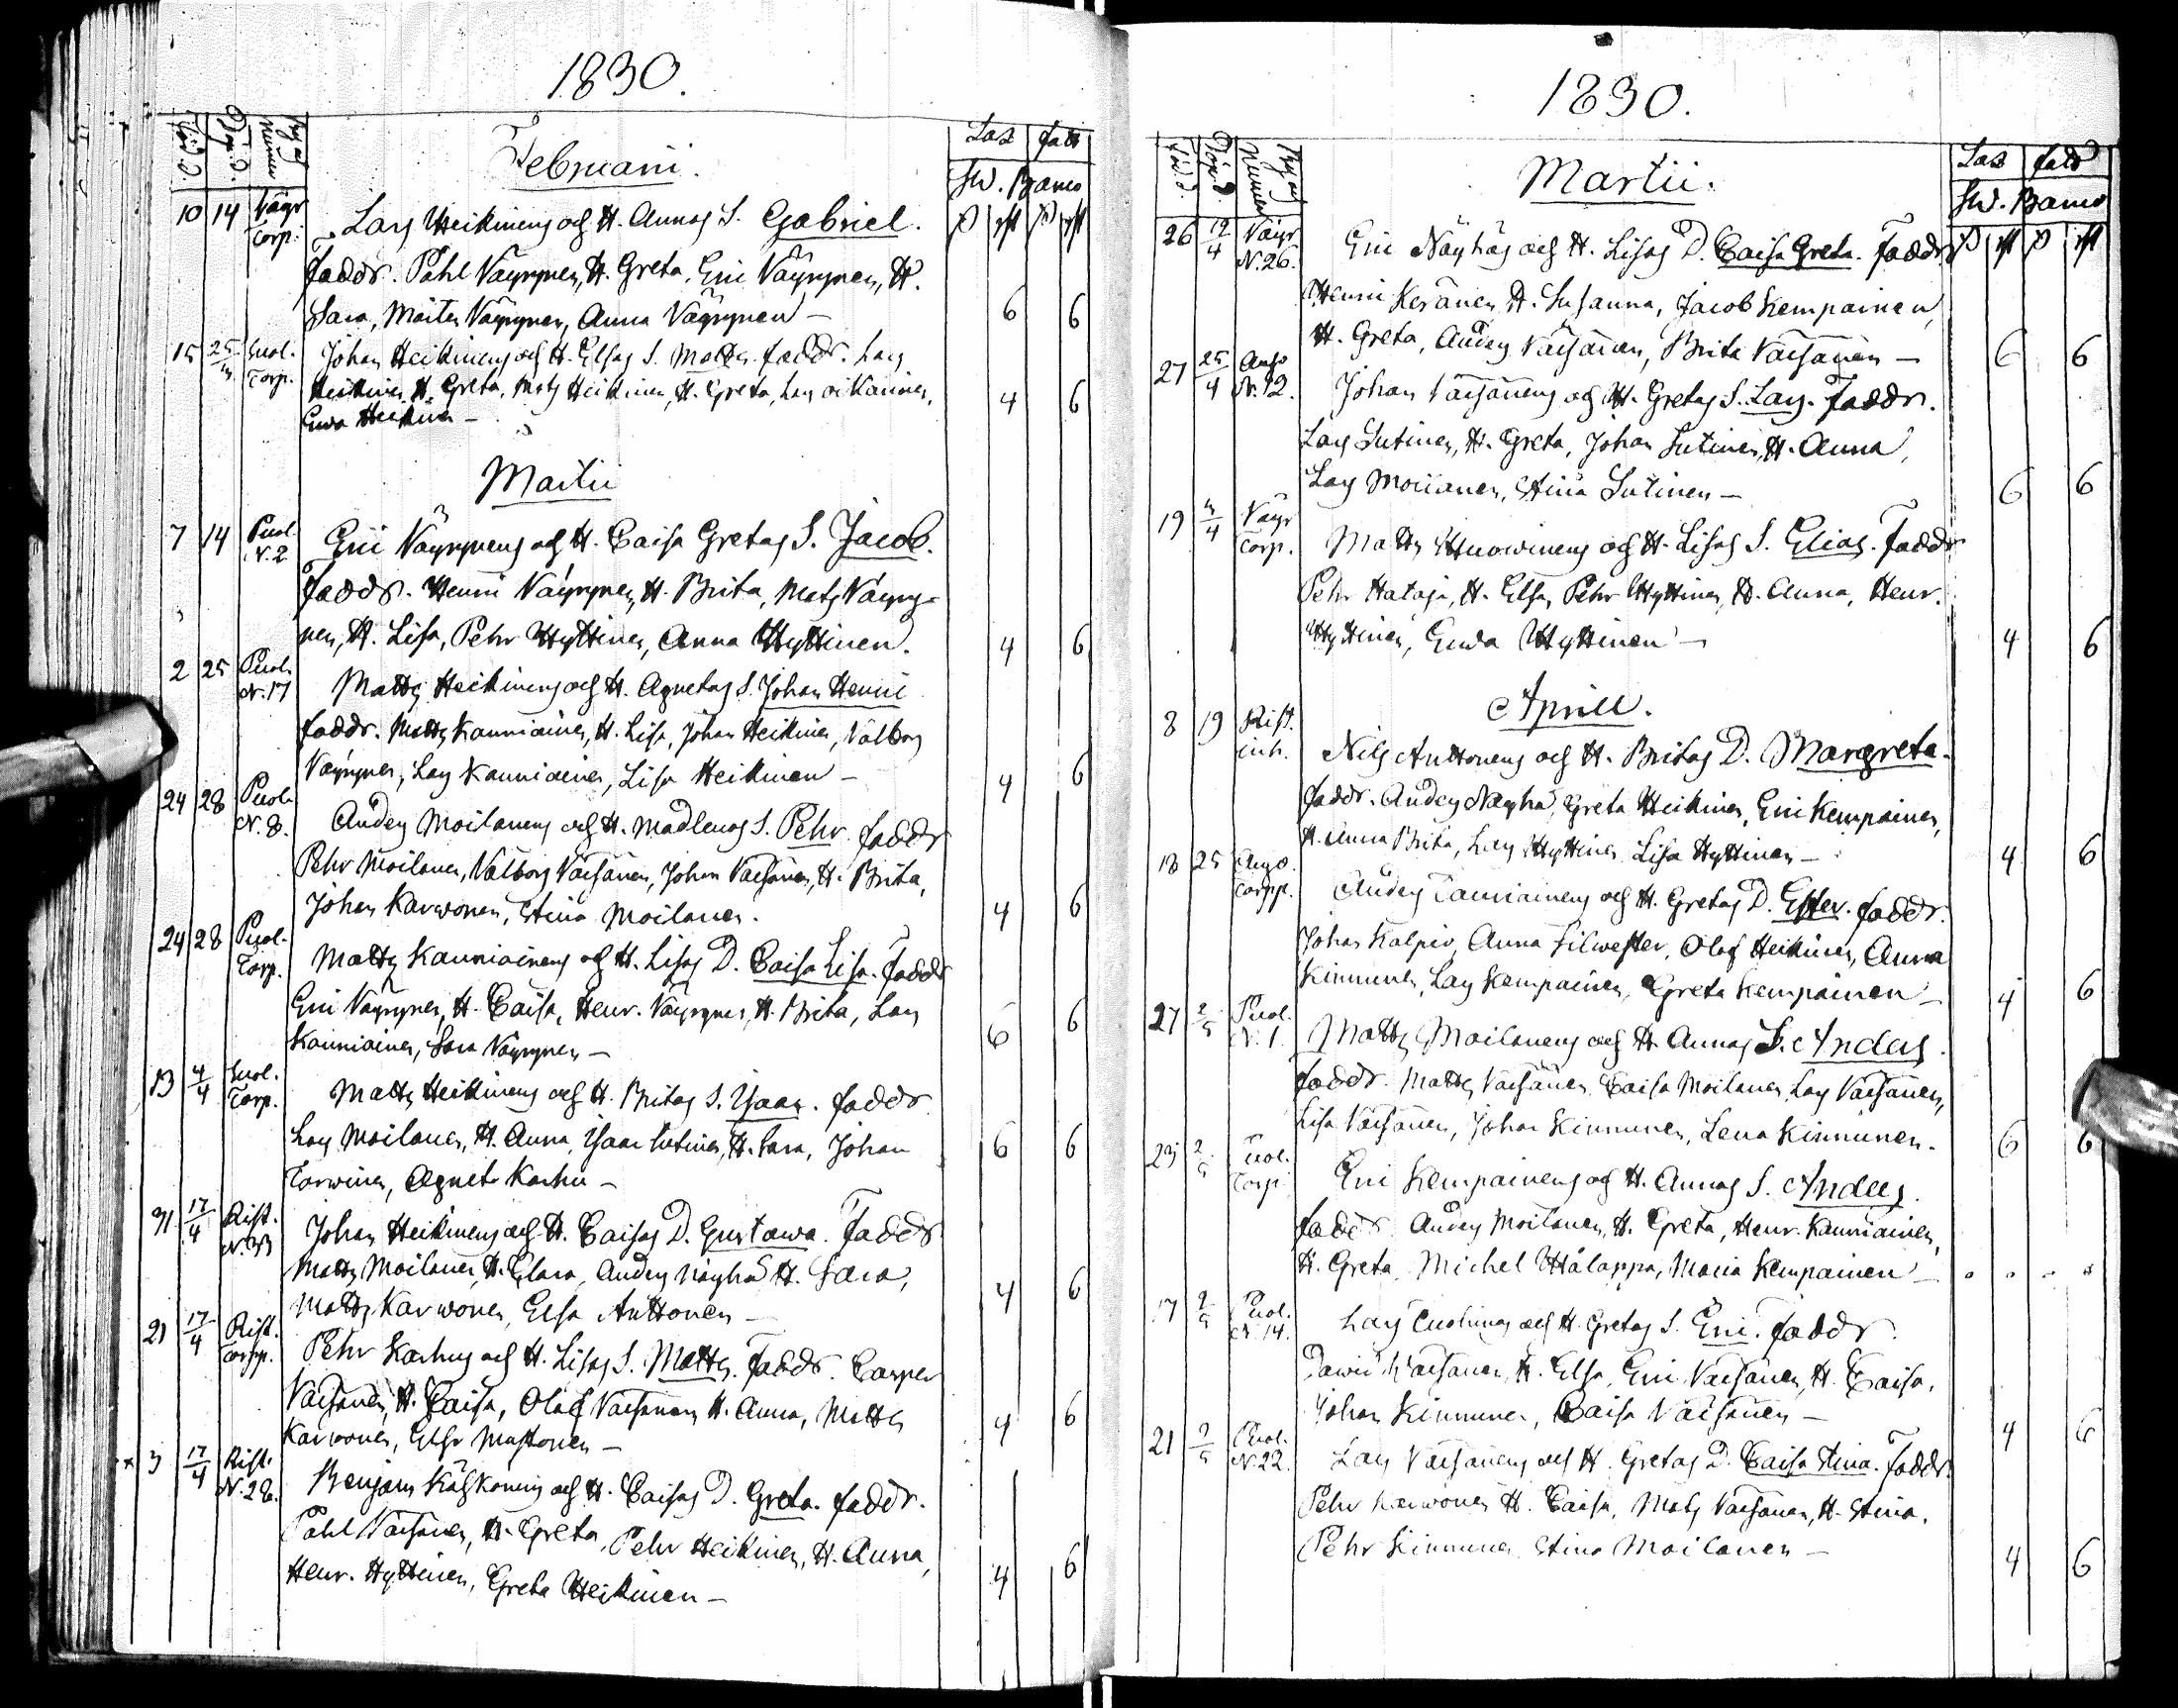 1830.
Februarii.
Las fadd
Sw. Banco
10 14 Väyr Torp. Lars Heikinens och H. Annas S. Gabriel.
Faddr. Påhl Väyrynen, H. Greta, Eric Väyrynen, H.
Sara, Mårten Väyrynen, Anna Väyrynen — 6 6
15 25 Suol. Torp. Johan Heikinens och H. Elsas S. Matts. Faddr. Lars
Heikinen, H. Greta, Mats Heikinen, H. Greta, Lars Oikarinen, 4 6
Ewa Heikinen —
Martii
7 14 Puol. N. 2 Eric Väyrynens och H. Caisa Gretas S. Jacob.
Faddr. Henric Väyrynen, H. Brita, Mats Väyry-
nen, H. Lisa, Pehr Hyttinen, Anna Hyttinen. 4 6
2 25 Puol. N. 17 Matts Heikinens och H. Agnetas S. Johan Henric
Faddr. Matts Kauniainen, H. Lisa, Johan Heikinen, Valborg
Väyrynen, Lars Kauniainen, Lisa Heikinen — 4 6
24 28 Puol. N. 8. Anders Moilanens och H. Madlenas S. Pehr. Faddr
Pehr Moilanen, Valborg Väisänen, Johan Väisänen, H. Brita,
Johan Karwonen, Stina Moilanen. 4 6
24 28 Puol. Torp. Matts Kauniainens och H. Lisas D. Caisa Lisa. Faddr
Eric Väyrynen, H. Caisa, Henr. Väyrynen, H. Brita, Lars
Kauniainen, Sara Väyrynen — 6 6
13 4/4 Suol. Torp. Matts Heikinens och H. Britas S. Isaac. Faddr
Lars Moilanen, H. Anna, Isaac Sutinen, H. Sara, Johan 6 6
Torwinen, Agneta Karhu —
31 17/4 Rist. N. 33 Johan Heikinens och H. Caisas D. Gustawa. Faddr
Matts Moilanen, H. Clara, Anders Näyhä H. Sara,
Matts Karwonen, Elsa Anttonen — 4 6
21 17/4 Rist. Torpp. Pehr Karhus och H. Lisas S. Matts. Faddr. Casper
Väisänen, H. Caisa, Olof Väisänen H. Anna, Matts
Karwonen, Elsa Mustonen — 4 6
× 3 17/4 Rist. N. 28. Benjam Kähkönens och H. Caisas D. Greta. Faddr.
Påhl Väisänen, H. Greta, Pehr Heikinen, H. Anna,
Henr. Hyttinen, Greta Heikinen — 4 6
1830.
Martii.
Las fadd
Sw. Banco
26 12/4 Väyr N. 26. Eric Näyhäs och H. Lisas D. Caisa Greta. Faddr.
Henric Keränen H. Susanna, Jacob Kempainen,
H. Greta, Anders Väisänen, Brita Väisänen — 6 6
27 25/4 N. 12. Johan Väisänens och H. Gretas S. Lars. Faddr.
Lars Sutinen, H. Greta, Johan Sutinen, H. Anna,
Lars Moilanen, Stina Sutinen — 6 6
19 4/4 Väyr Torp. Matts Huowinens och H. Lisas S. Elias. Faddr
Pehr Hataja, H. Elsa, Pehr Hyttinen, H. Anna, Henr.
Hyttinen, Ewa Hyttinen — 4 6
Aprill.
8 19 Rist. inh. Nils Anttonens och H. Britas D. Margreta.
Faddr. Anders Näyhä, Greta Heikinen, Eric Kempainen,
H. Anna Brita, Lars Hyttinen Lisa Hyttinen — 4 6
18 25 Torpp. Anders Tauriainens och H. Gretas D. Ester. Faddr.
Johan Kalpio, Anna Silwester, Olof Heikinen, Anna
Kinnunen, Lars Kempainen, Greta Kempainen — 4 6
27 2/5 Puol. N. 1. Matts Moilanens och H. Annas S. Anders.
Faddr. Matts Väisänen Caisa Moilanen, Lars Väisänen,
Lisa Väisänen, Johan Kinnunen, Lena Kinnunen. 6 6
23 2/5 Puol. Torp. Eric Kempainens och H. Annas S. Anders.
Faddr. Anders Moilanen, H. Greta, Henr. Kauniainen,
H. Greta, Michel Hålappa, Maria Kempainen —
17 2/5 Puol. N. 14. Lars och H. Gretas S. Eric. Faddr.
Dawid Väisänen, H. Elsa, Eric Väisänen, H. Caisa,
Johan Kinnunen, Caisa Väisänen — 4 6
21 2/5 Puol. N. 22. Lars Väisänens och H. Gretas D. Caisa Stina. Faddr.
Pehr Karwonen H. Caisa, Mats Väisänen, H. Stina,
Pehr Kinnunen Stina Moilanen — 4 6